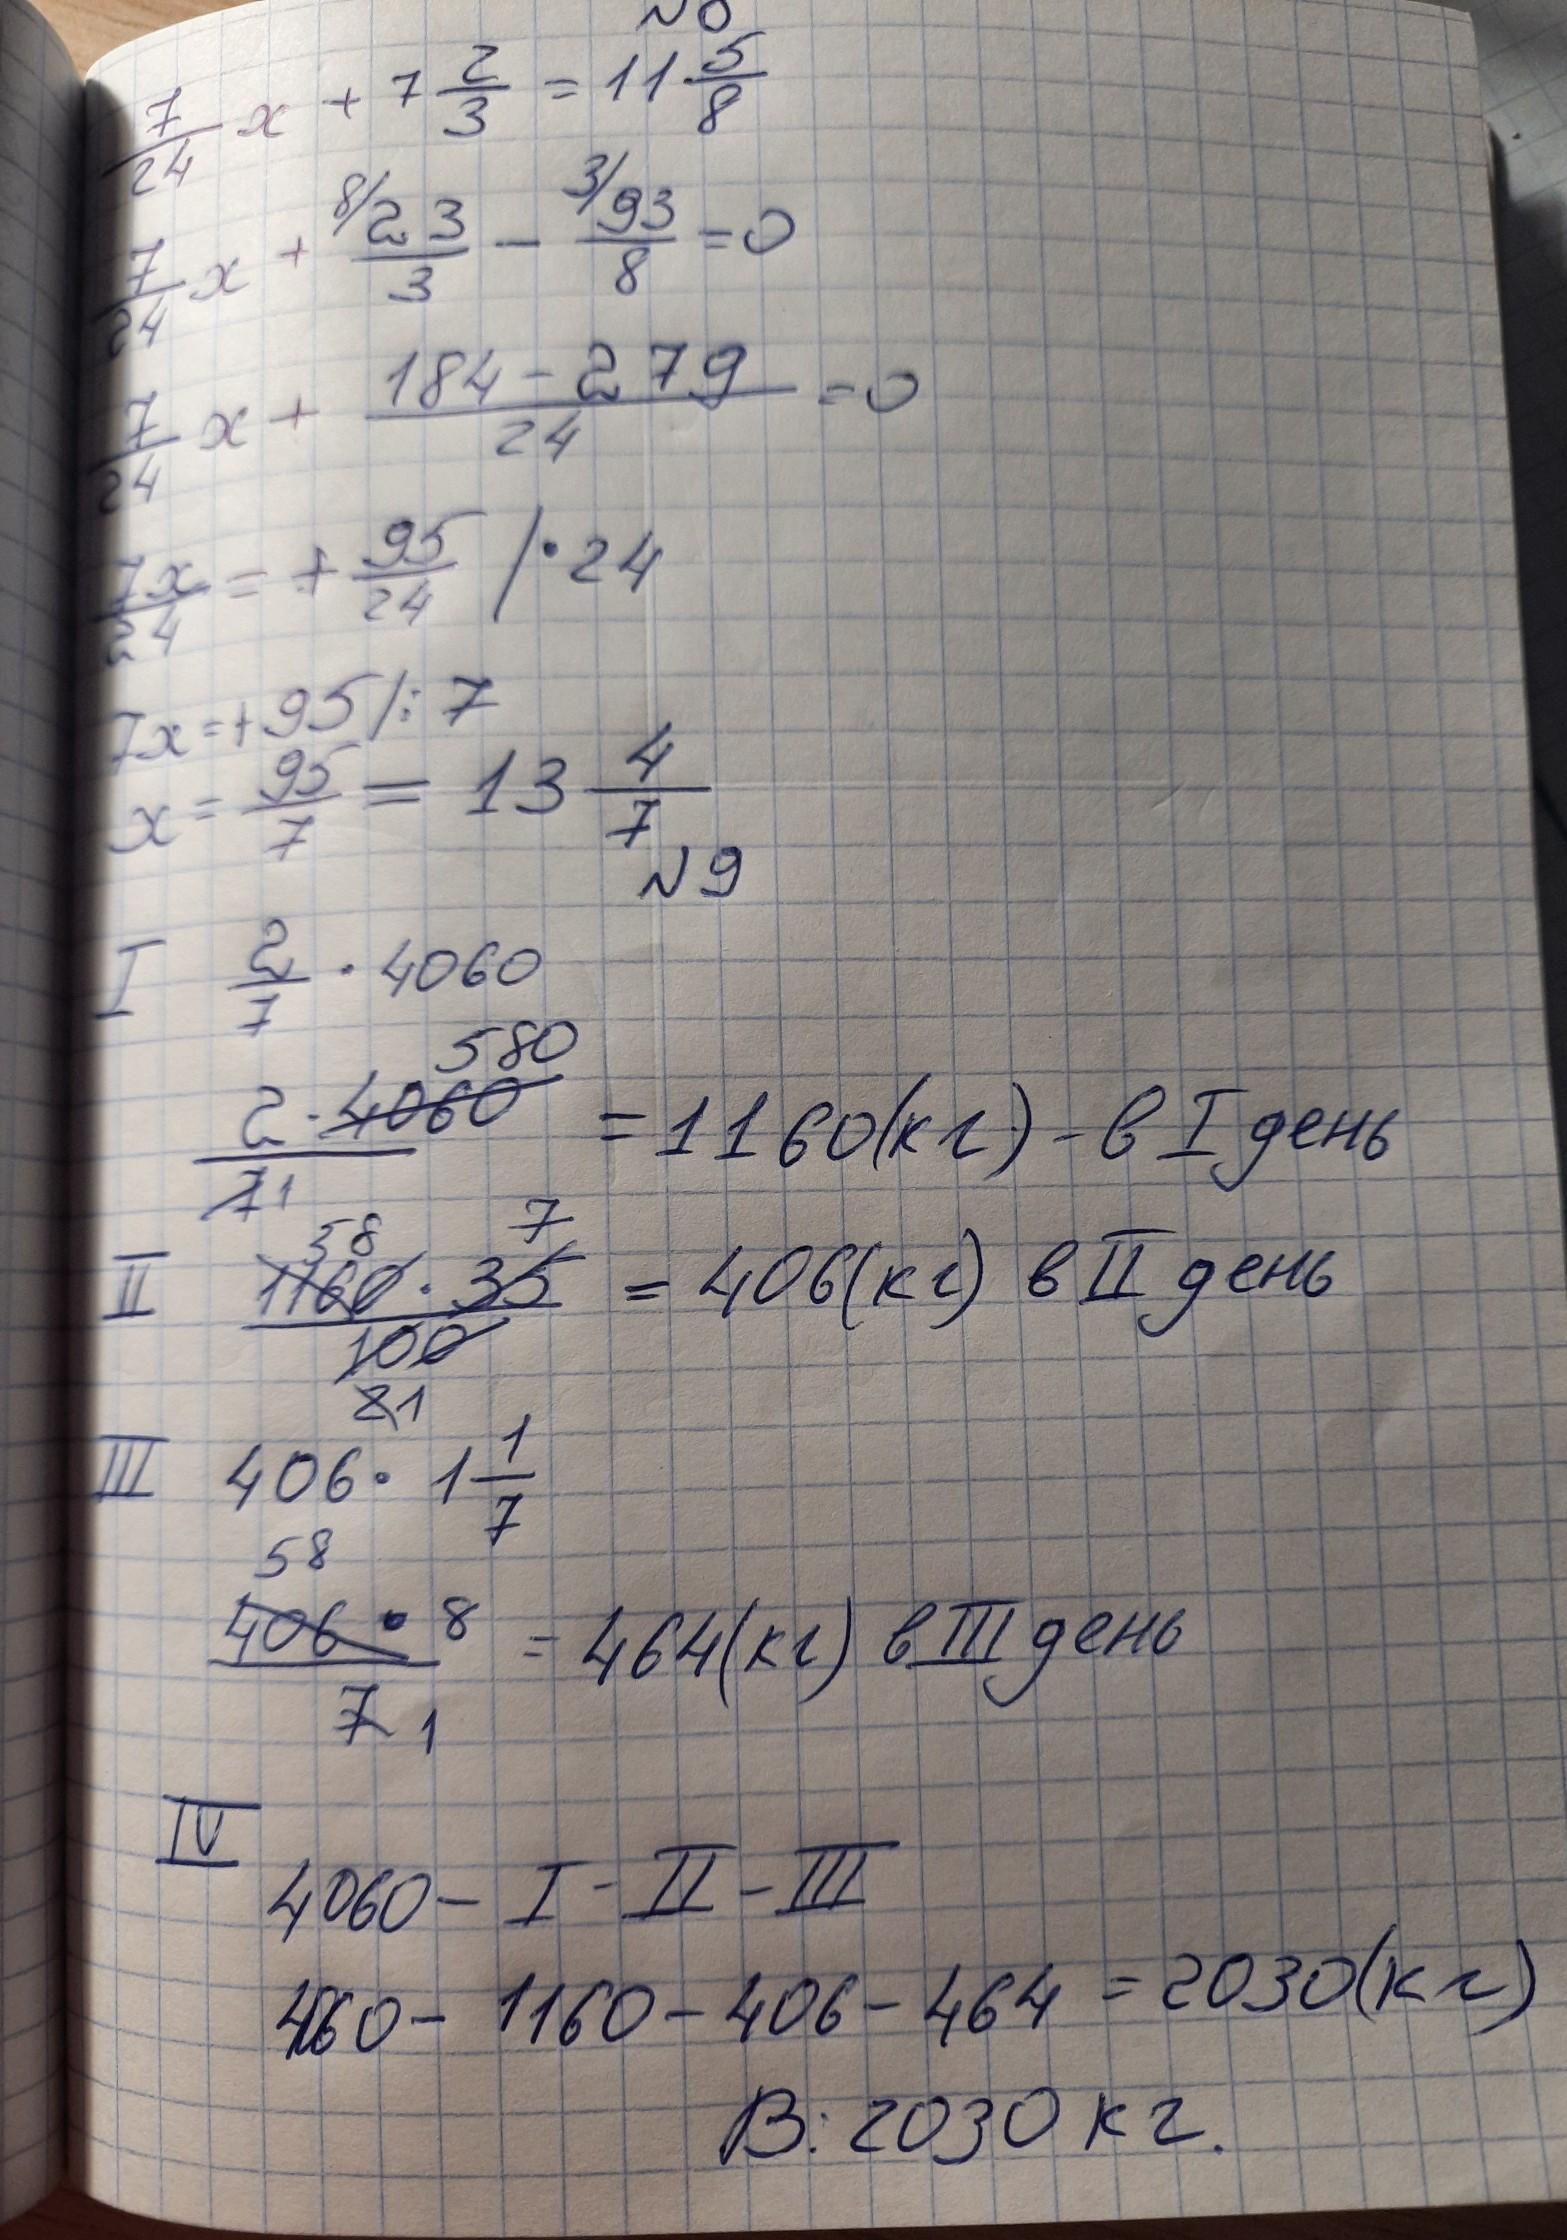 7/24 x + 7 2/3 = 11 5/8
7/24 x + 8/ 23/3 - 3/ 93/8 = 0
7/24 x + (184 - 279)/24 = 0
7x/24 = + 95/24 /·24
7x = +95 /: 7
x = 95/7 = 13 4/7
N9
I 2/7 · 4060
580
2 · 4060 / 7 1 = 1160(кг) - в I день
58 7
II 1160 · 35 / 100 = 406(кг) в II день
2 1
III 406 · 1 1/7
58
406 · 8 / 7 1 = 464(кг) в III день
IV
4060 - I - II - III
4060 - 1160 - 406 - 464 = 2030(кг)
В: 2030 кг.